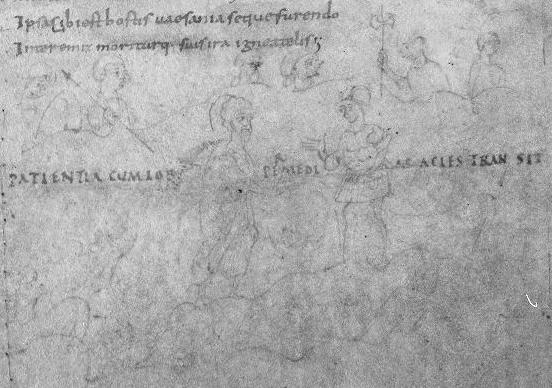 Ipsa sibi est hostis uaesania seque furendo
Interemit moriturq; suis ira ignea telis;
PATIENTIA CUM IOB PERMEDI AS ACIES TRAN SIT